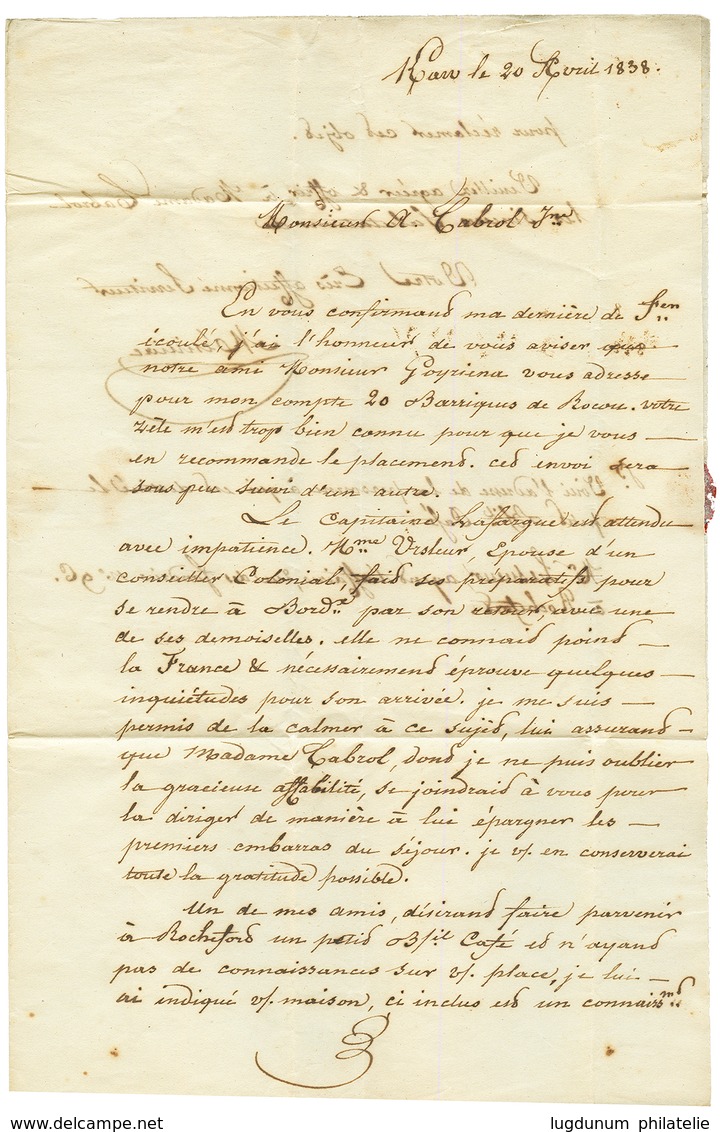 Kaw le 20 Avril 1838.
Monsieur A. Cabrol Jne
En vous confirmand ma dernière de fer
écoulé, j'ai l'honneur de vous aviser que
notre ami Monsieur Goyriena vous adresse
pour mon compte 20 Barriques de Rocou. votre
zèle m'est trop bien connu pour que je vous
en recommande le placemend. ced envoi sera
sous peu suivi d'un autre.
Le Capitaine Lafargue est attendu
avec impatience. Mme Ursleur Epouse d'un
conseiller Colonial, faid ses préparatifs pour
se rendre à Bordx par son retour, avec une
de ses demoiselles. elle ne connaid poind
la France & nécessairemend éprouve quelques
inquiétudes pour son arrivée. je me suis
permis de la calmer à ce sujed, lui assurand
que Madame Cabrol, dond je ne puis oublier
la gracieuse affabilité, se joindraid à vous pour
la diriger de manière à lui épargner les
premiers embarras du séjour. je v/. en conserverai
toute la gratitude possible.
Un de mes amis, désirand faire parvenir
à Rocheford un petid B/il Café ed n'ayand
pas de connaissances sur v/. place, je lui
ai indiqué v/. maison, ci inclus esd un connaissmd
delcampe.net
lugdunum philatelie